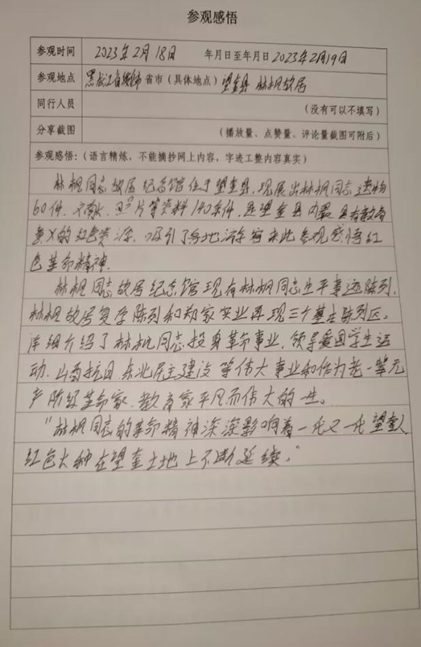 参观感悟
参观时间 2023年2月18日 年月日至年月日 2023年2月19日
参观地点 黑龙江省绥化市 省市（具体地点）望奎县 林枫故居
同行人员 （没有可以不填写）
分享截图 （播放量、点赞量、评论量截图可附后）
参观感悟：（语言精炼、不能摘抄网上内容、字迹工整内容真实）
林枫同志故居纪念馆位于望奎县，现展出林枫同志遗物
60件，文献、照片等资料190余件，是望奎县内最具有教育
意义的红色资源，吸引了各地游客来此参观感悟红
色革命精神。
林枫同志故居纪念馆现有林枫同志生平事迹陈列，
林枫故居复原陈列和郑家实业再现三个基本陈列区。
详细介绍了林枫同志投身革命事业，领导爱国学生运
动、山西抗日、东北民主建设等伟大事业和作为老一辈无
产阶级革命家、教育家平凡而伟大的一生。
“林枫同志的革命精神深深影响着一代又一代望奎人
红色火种在望奎土地上不断延续。”